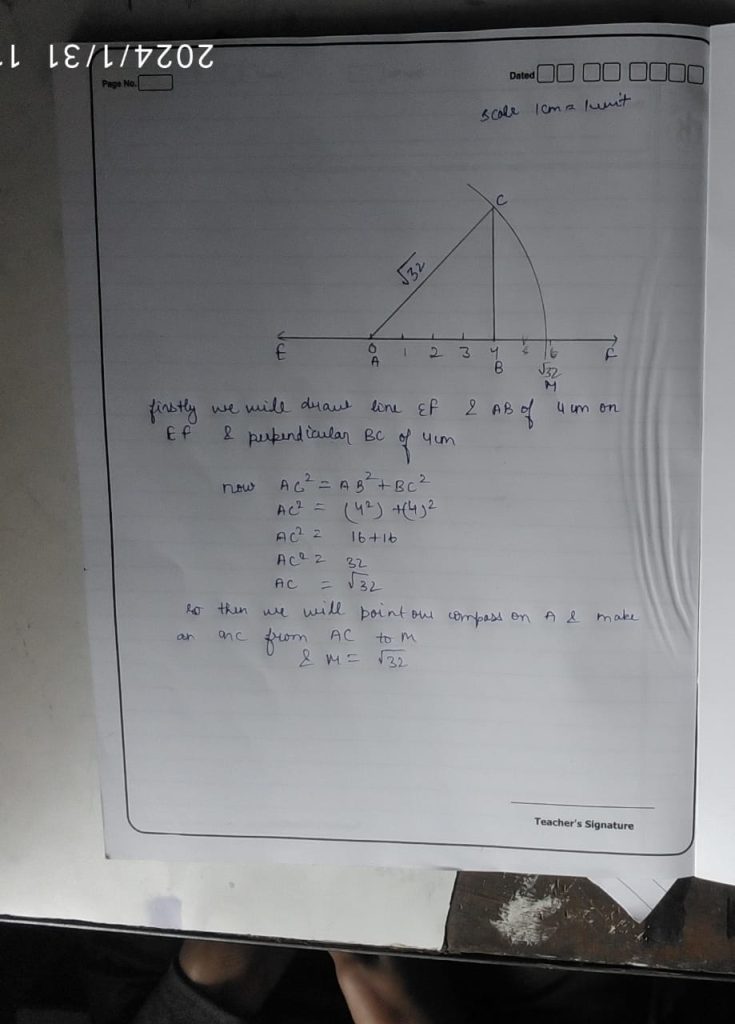 2024/1/31 11
Page No.
Dated
scale 1cm = 1unit
C
√32
E 0 1 2 3 4 5 6 F
A B √32
M
firstly we will draw line EF & AB of 4 cm on
EF & perpendicular BC of 4cm
now AC² = AB² + BC²
AC² = (4²) + (4)²
AC² = 16+16
AC² = 32
AC = √32
so then we will point our compass on A & make
an arc from AC to M
& M = √32
Teacher's Signature